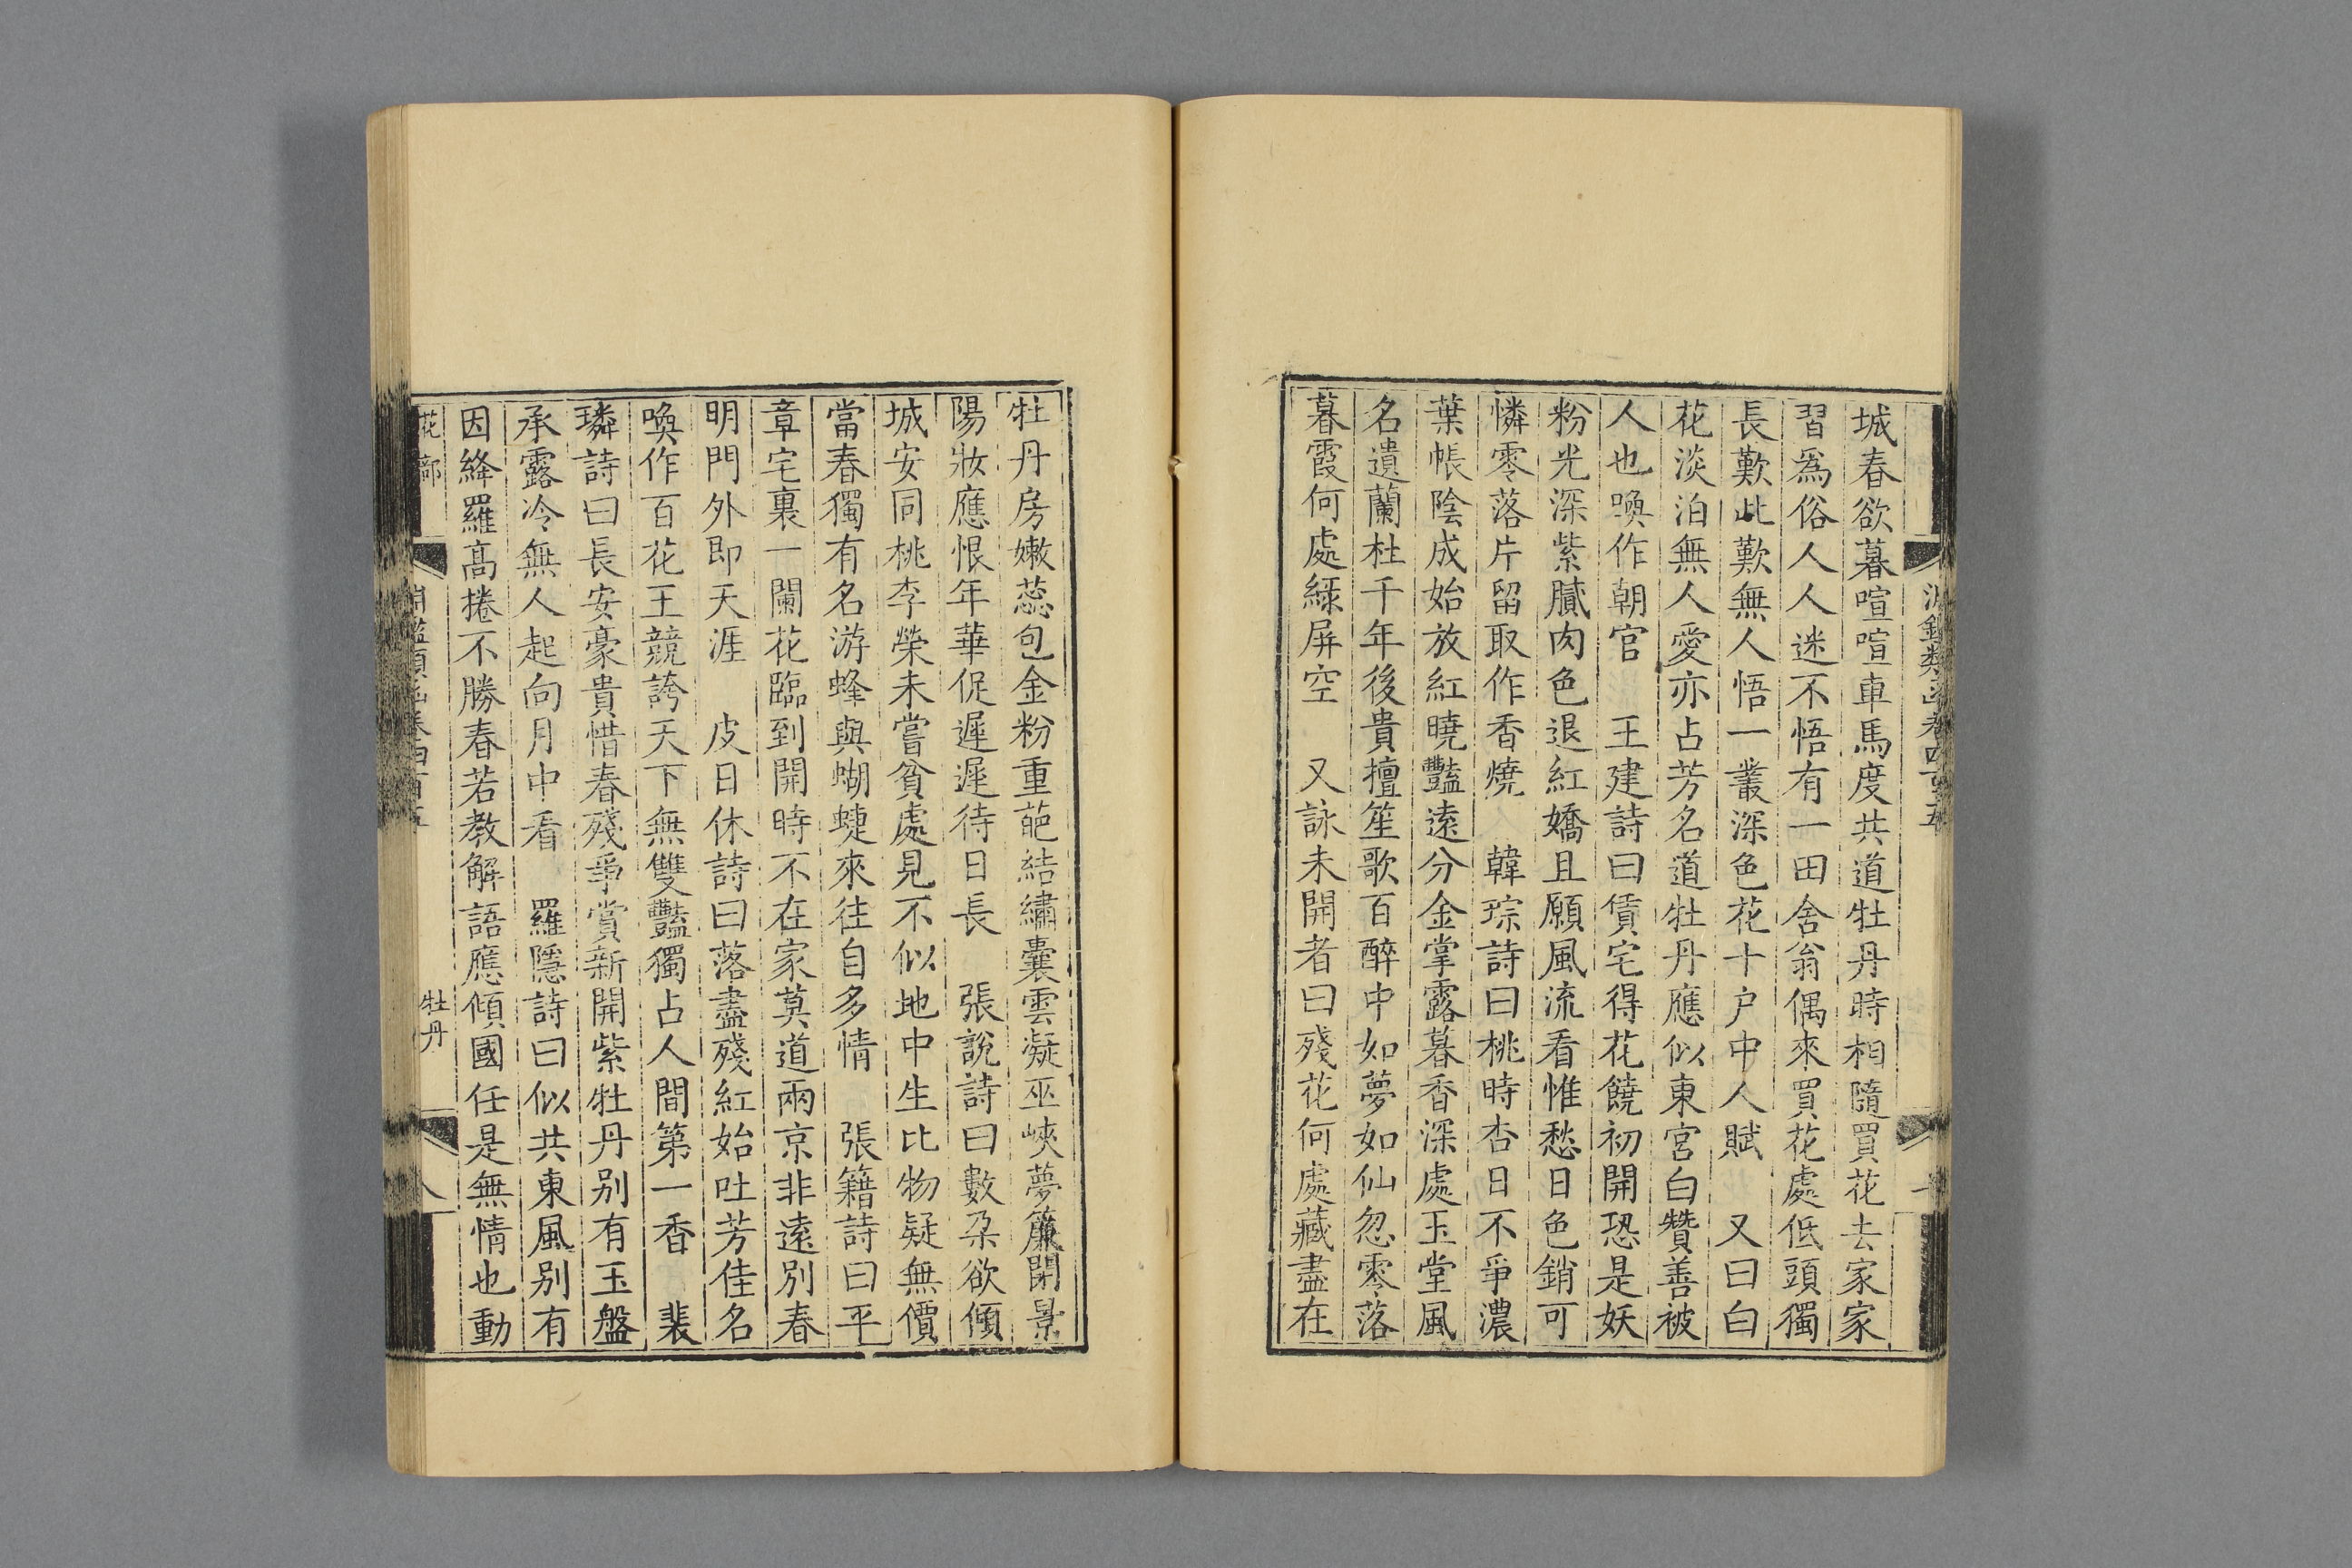 城春欲暮喧喧車馬度共道牡丹時相隨買花去家家
習爲俗人人迷不悟有一田舍翁偶來買花處低頭獨
長歎此歎無人悟一叢深色花十户中人賦　又曰白
花淡泊無人愛亦占芳名道牡丹應似東宮白贊善被
人也喚作朝官　王建詩曰賃宅得花饒初開恐是妖
粉光深紫膩肉色退紅嬌且願風流看惟愁日色銷可
憐零落片留取作香燒　韓琮詩曰桃時杏日不爭濃
葉帳陰成始放紅曉豔遠分金掌露暮香深處玉堂風
名遺蘭杜千年後貴擅笙歌百醉中如夢如仙忽零落
暮霞何處綠屏空　又詠未開者曰殘花何處藏盡在
牡丹房嫩蕊包金粉重葩結繡囊雲凝巫峽夢簾閉景
陽妝應恨年華促遲遲待日長　張說詩曰數朶欲傾
城安同桃李榮未嘗貧處見不似地中生比物疑無價
當春獨有名游蜂與蝴蝶來往自多情　張籍詩曰平
章宅裏一闌花臨到開時不在家莫道兩京非遠別春
明門外即天涯　皮日休詩曰落盡殘紅始吐芳佳名
喚作百花王競誇天下無雙豔獨占人間第一香　裴
璘詩曰長安豪貴惜春殘爭賞新開紫牡丹別有玉盤
承露冷無人起向月中看　羅隱詩曰似共東風別有
因絳羅高捲不勝春若教解語應傾國任是無情也動
花部　類函卷四百五　牡丹　八